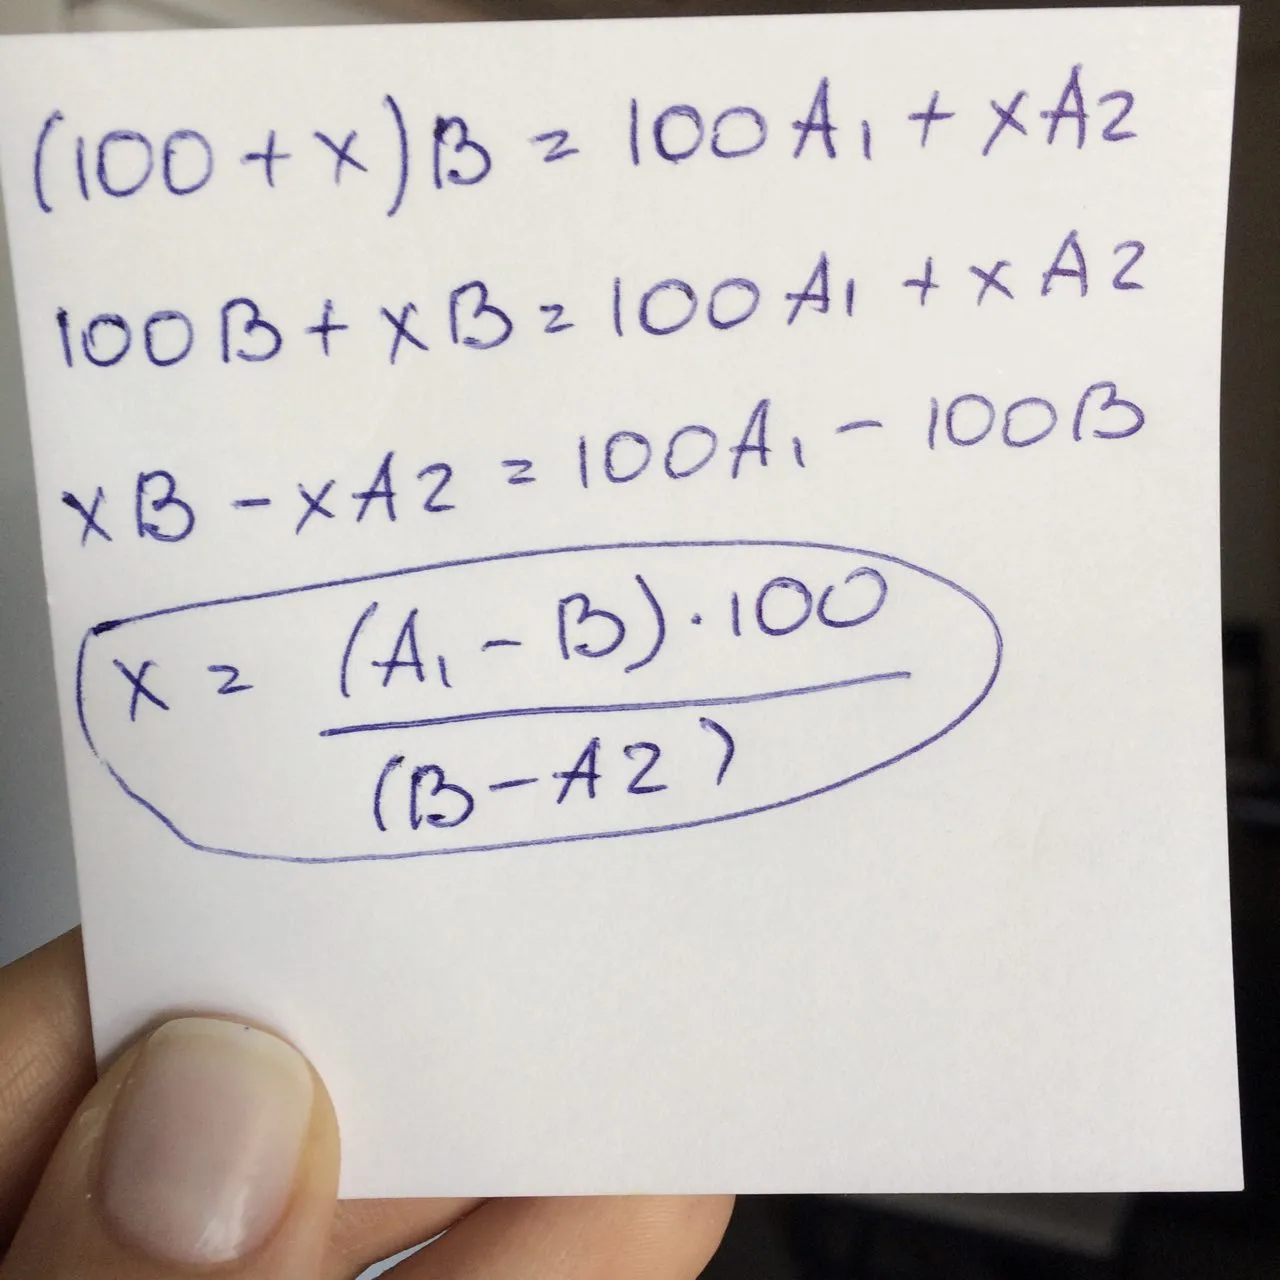 (100 + x) B = 100 A₁ + x A2
100 B + x B = 100 A₁ + x A2
x B - x A2 = 100 A₁ - 100 B
x = (A₁ - B) · 100
(B - A2)